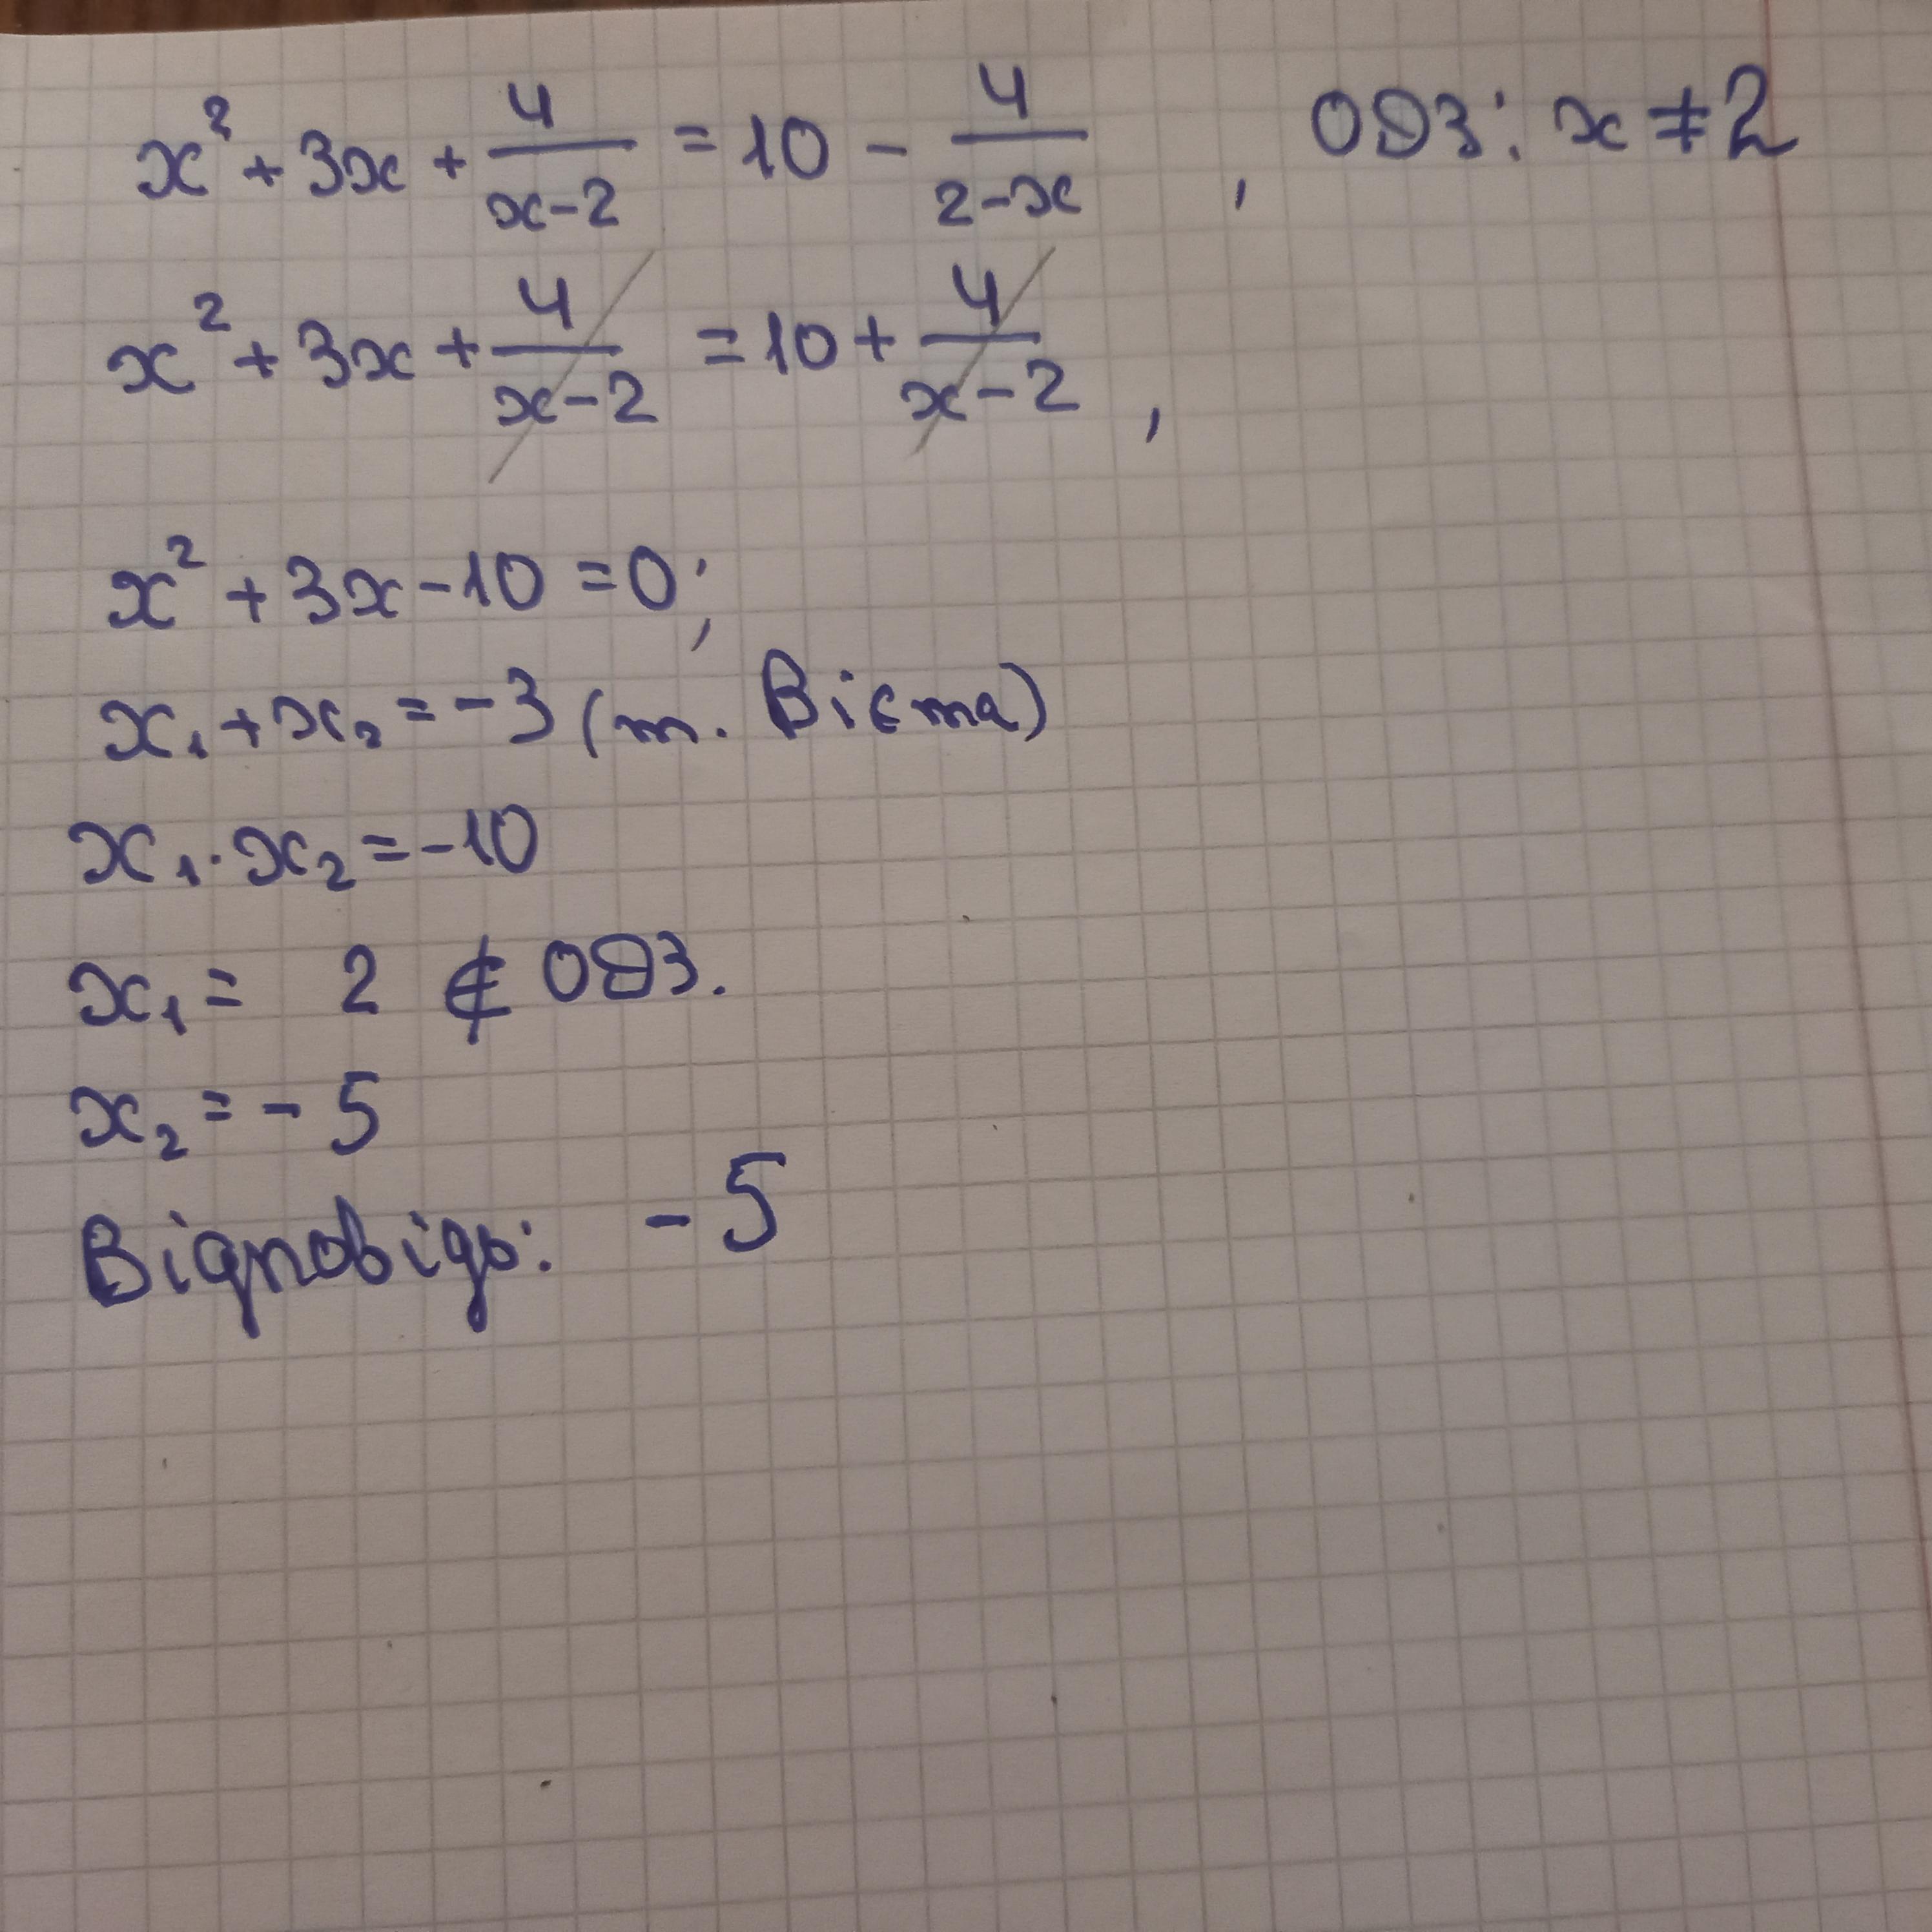 x² + 3x + 4/(x-2) = 10 - 4/(2-x) , ОДЗ: x ≠ 2
x² + 3x + 4/(x-2) = 10 + 4/(x-2) ,
x² + 3x - 10 = 0;
x₁ + x₂ = -3 (т. Вієта)
x₁ · x₂ = -10
x₁ = 2 ∉ ОДЗ.
x₂ = - 5
Відповідь: - 5